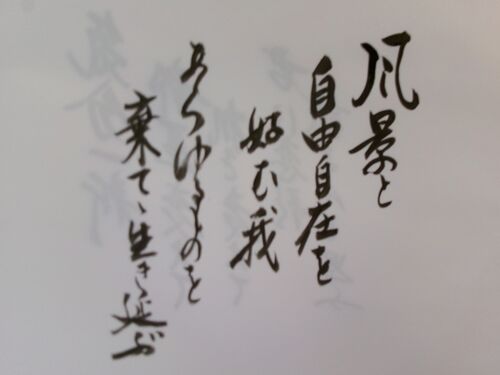 風景と
自由自在を
好む我
あらゆるものを
棄てゝ生き延ぶ